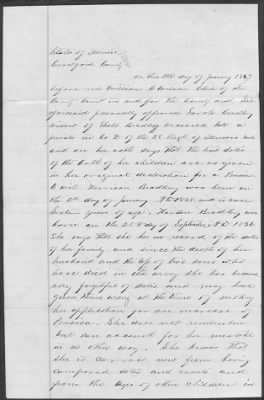 State of Illinois
Crawford County
on this 28th day of January 1867
before me William C Wilson Clerk of the
County Court in and for the County and State
aforesaid personally appeared Sarah Bradley
widow of Bradley deceased late a
private in Co D of the 22 Regt of Illinois vols
and on her oath says that the true dates
of the birth of her children are as given
in her original declaration for a Pension
to wit Harrison Bradley was born on
the 8th day of January AD and is now
years of age, Bradley was
born on the 25th day of September AD 1856
She says that she has no record of the date
of her family and since the death of her
husband and the loss of two sons who
have died in the army She has become
very forgetful of dates and may have
given them wrong at the time of making
her application for an increase of
Pension. She does not remember
but can account for her mistake
in no other way. She knows that
she is correct now from having
compared dates and events and
from the ages of other children in